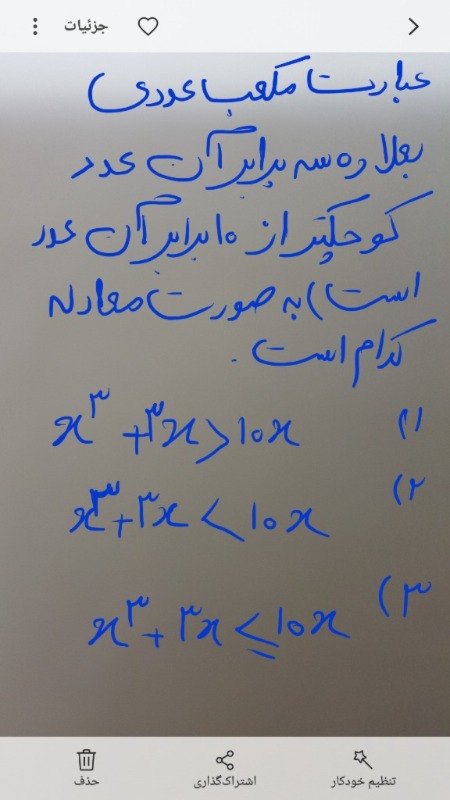 جزئیات
عبارت مکعب عددی)
بعلاوه سه برابر آن عدد
کوچکتر از ۱۰ برابر آن عدد
است) به صورت معادله
کدام است.
۱) x³ + ۳x > ۱۰x
۲) x³ + ۳x < ۱۰x
۳) x³ + ۳x ≤ ۱۰x
تنظیم خودکار
اشتراک‌گذاری
حذف